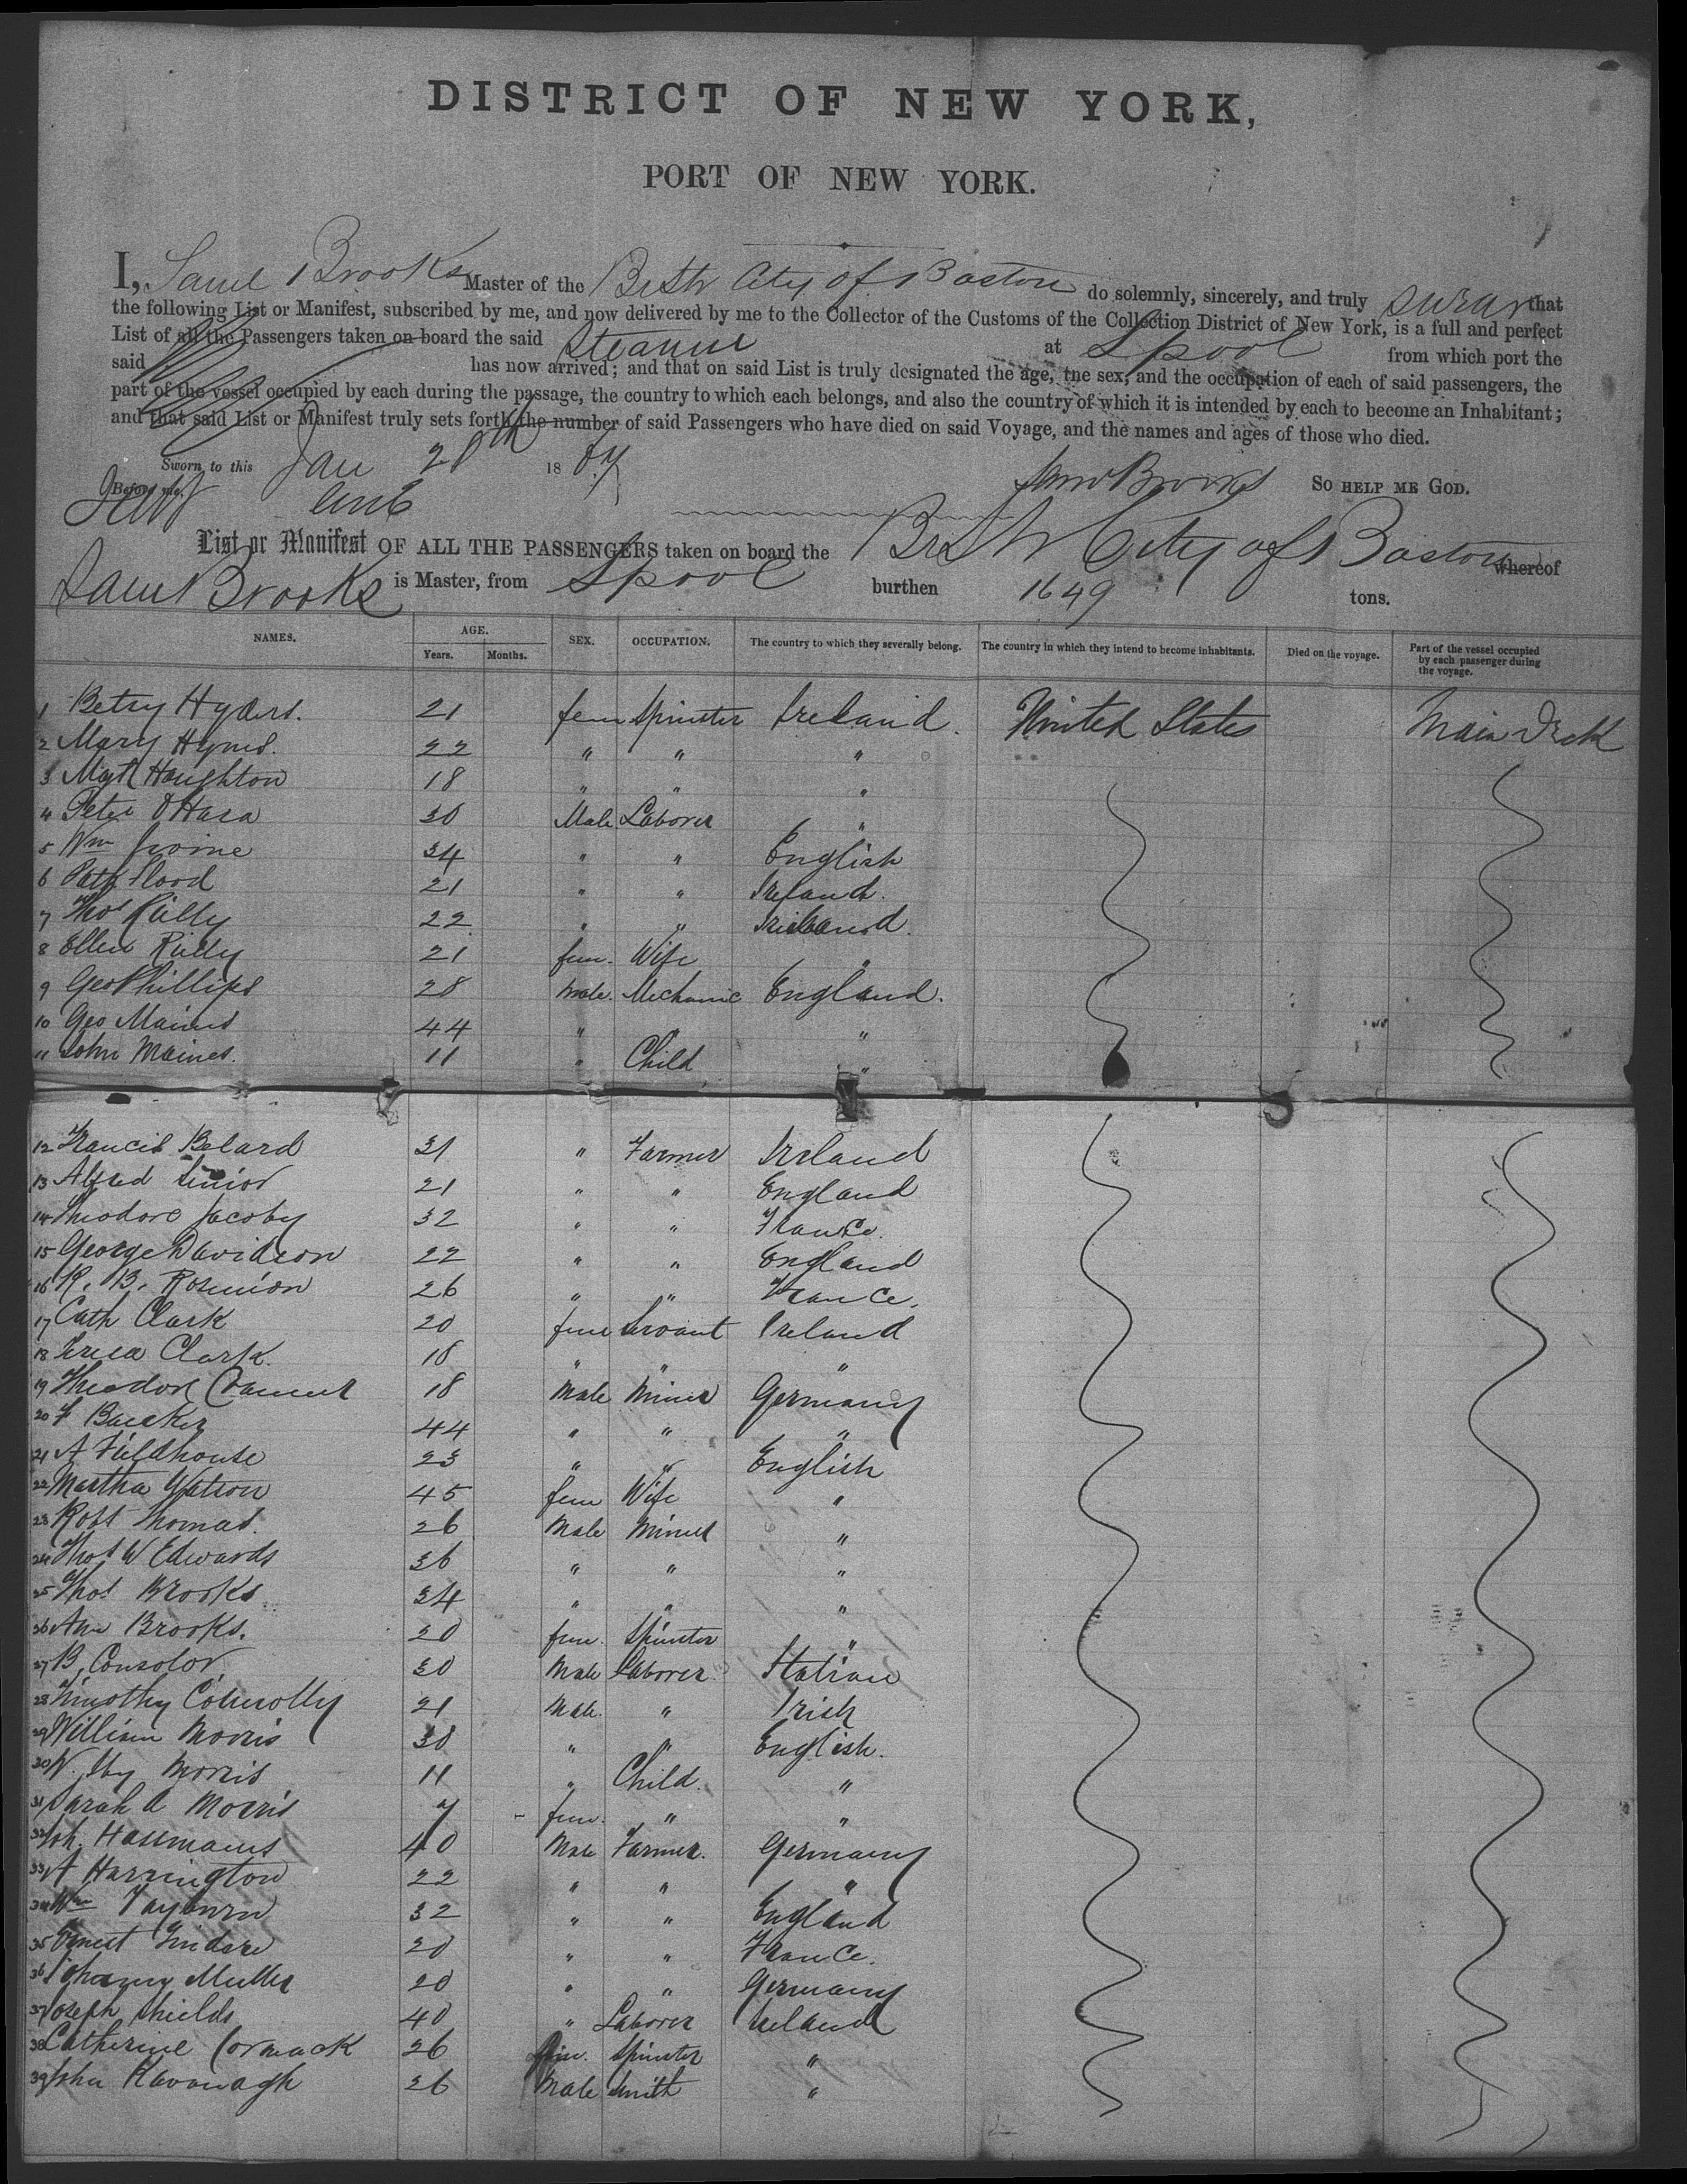 DISTRICT OF NEW YORK,
PORT OF NEW YORK.
I, Saml Brooks Master of the Brsh City of Boston do solemnly, sincerely, and truly swear that
the following List or Manifest, subscribed by me, and now delivered by me to the Collector of the Customs of the Collection District of New York, is a full and perfect
List of all the Passengers taken on board the said Steamer at Lpool from which port the
said has now arrived; and that on said List is truly designated the age, the sex, and the occupation of each of said passengers, the
part of the vessel occupied by each during the passage, the country to which each belongs, and also the country of which it is intended by each to become an Inhabitant;
and that said List or Manifest truly sets forth the number of said Passengers who have died on said Voyage, and the names and ages of those who died.
Sworn to this Jan 28th 1867 Saml Brooks So HELP ME GOD.
Before me,
List or Manifest OF ALL THE PASSENGERS taken on board the Brsh City of Boston whereof
Saml Brooks is Master, from Lpool burthen 1649 tons.
NAMES. AGE. SEX. OCCUPATION. The country to which they severally belong. The country in which they intend to become inhabitants. Died on the voyage. Part of the vessel occupied by each passenger during the voyage.
Years. Months.
1 Betsy Hyders. 21 fem Spinster Ireland. United States Main Deck
2 Mary Hynes. 22 " " "
3 Mgt Houghton 18 " " "
4 Peter O'Hara 30 Male Laborer "
5 Wm Irvine 34 " " English
6 Patk Flood 21 " " Ireland.
7 Thos Rielly 22 " " Ireland.
8 Ellen Rielly 21 fem. Wife "
9 Geo Phillips 28 Male. Mechanic England.
10 Geo Maines 44 " " "
11 John Maines. 11 " Child "
12 Francis Belard 31 " Farmer Ireland
13 Alfred Senior 21 " " England
14 Theodore Jacoby 32 " " France.
15 George Davidson 22 " " England
16 R. B. 26 " " France.
17 Cath Clark 20 fem Servant Ireland
18 Clark. 18 " " "
19 Theodore 18 Male Miner Germany
20 F 44 " " "
21 A Fieldhouse 23 " " English
22 Martha Watson 45 fem Wife "
23 Robt Thomas. 26 Male Miner "
24 Thos W Edwards 36 " " "
25 Thos Brooks 34 " " "
26 Ann Brooks. 20 fem. Spinster "
27 B. Consolov 30 Male Laborer Italian
28 Timothy Connolly 21 Male. " Irish
29 William Morris 30 " " English.
30 W. Hy Morris 11 " Child. "
31 Sarah A Morris 7 fem. " "
32 Joh. Hassmanns 40 Male Farmer. Germany
33 A Harrington 22 " " "
34 Wm Rayburn 32 " " England
35 Ernest 20 " " France.
36 Johanny Muller 20 " " Germany
37 Joseph Shields 40 " Laborer Ireland
38 Catherine Cormack 26 fem. Spinster "
39 John Kavanagh 26 Male Smith "